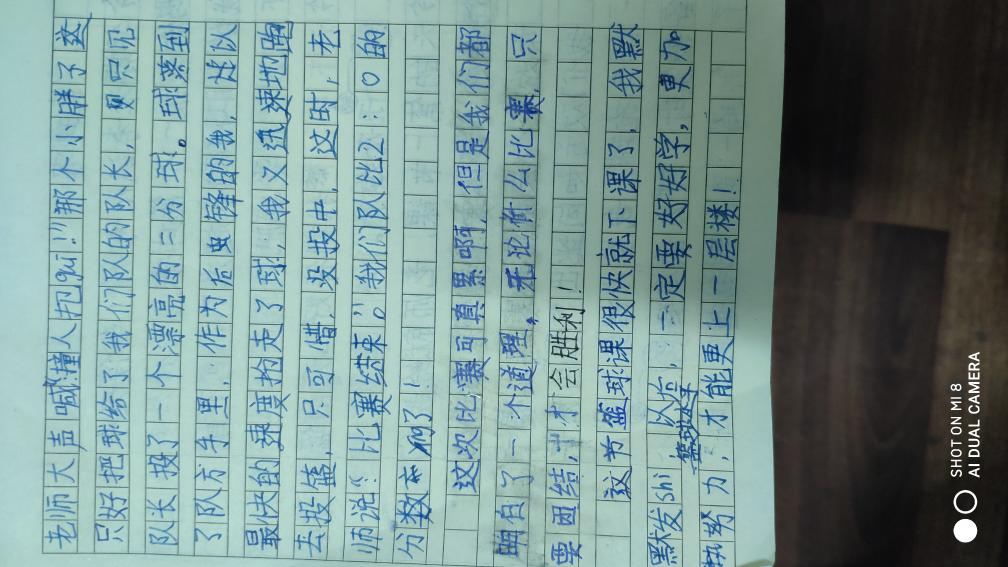 老师大声喊撞人犯gui!"那个小胖子这
只好把球给了我们队的队长,只见
队长投了一个漂亮的二分球。球落到
了队方手里,作为后卫的我,以
最快的速度抢走了球,我又迅速地跑
去投篮,只可惜,没投中,这时,老
师说:"比赛结束。"我们队比2:0的
分数 了!
这次比赛可真累啊,但是我们都
明白了一个道理。无论什么比赛,只
要团结,才会胜利!
这节篮球课很快就下课了,我默
默发shi,以后,一定要好好学,更加
努力,才能更上一层楼!
SHOT ON MI 8
AI DUAL CAMERA